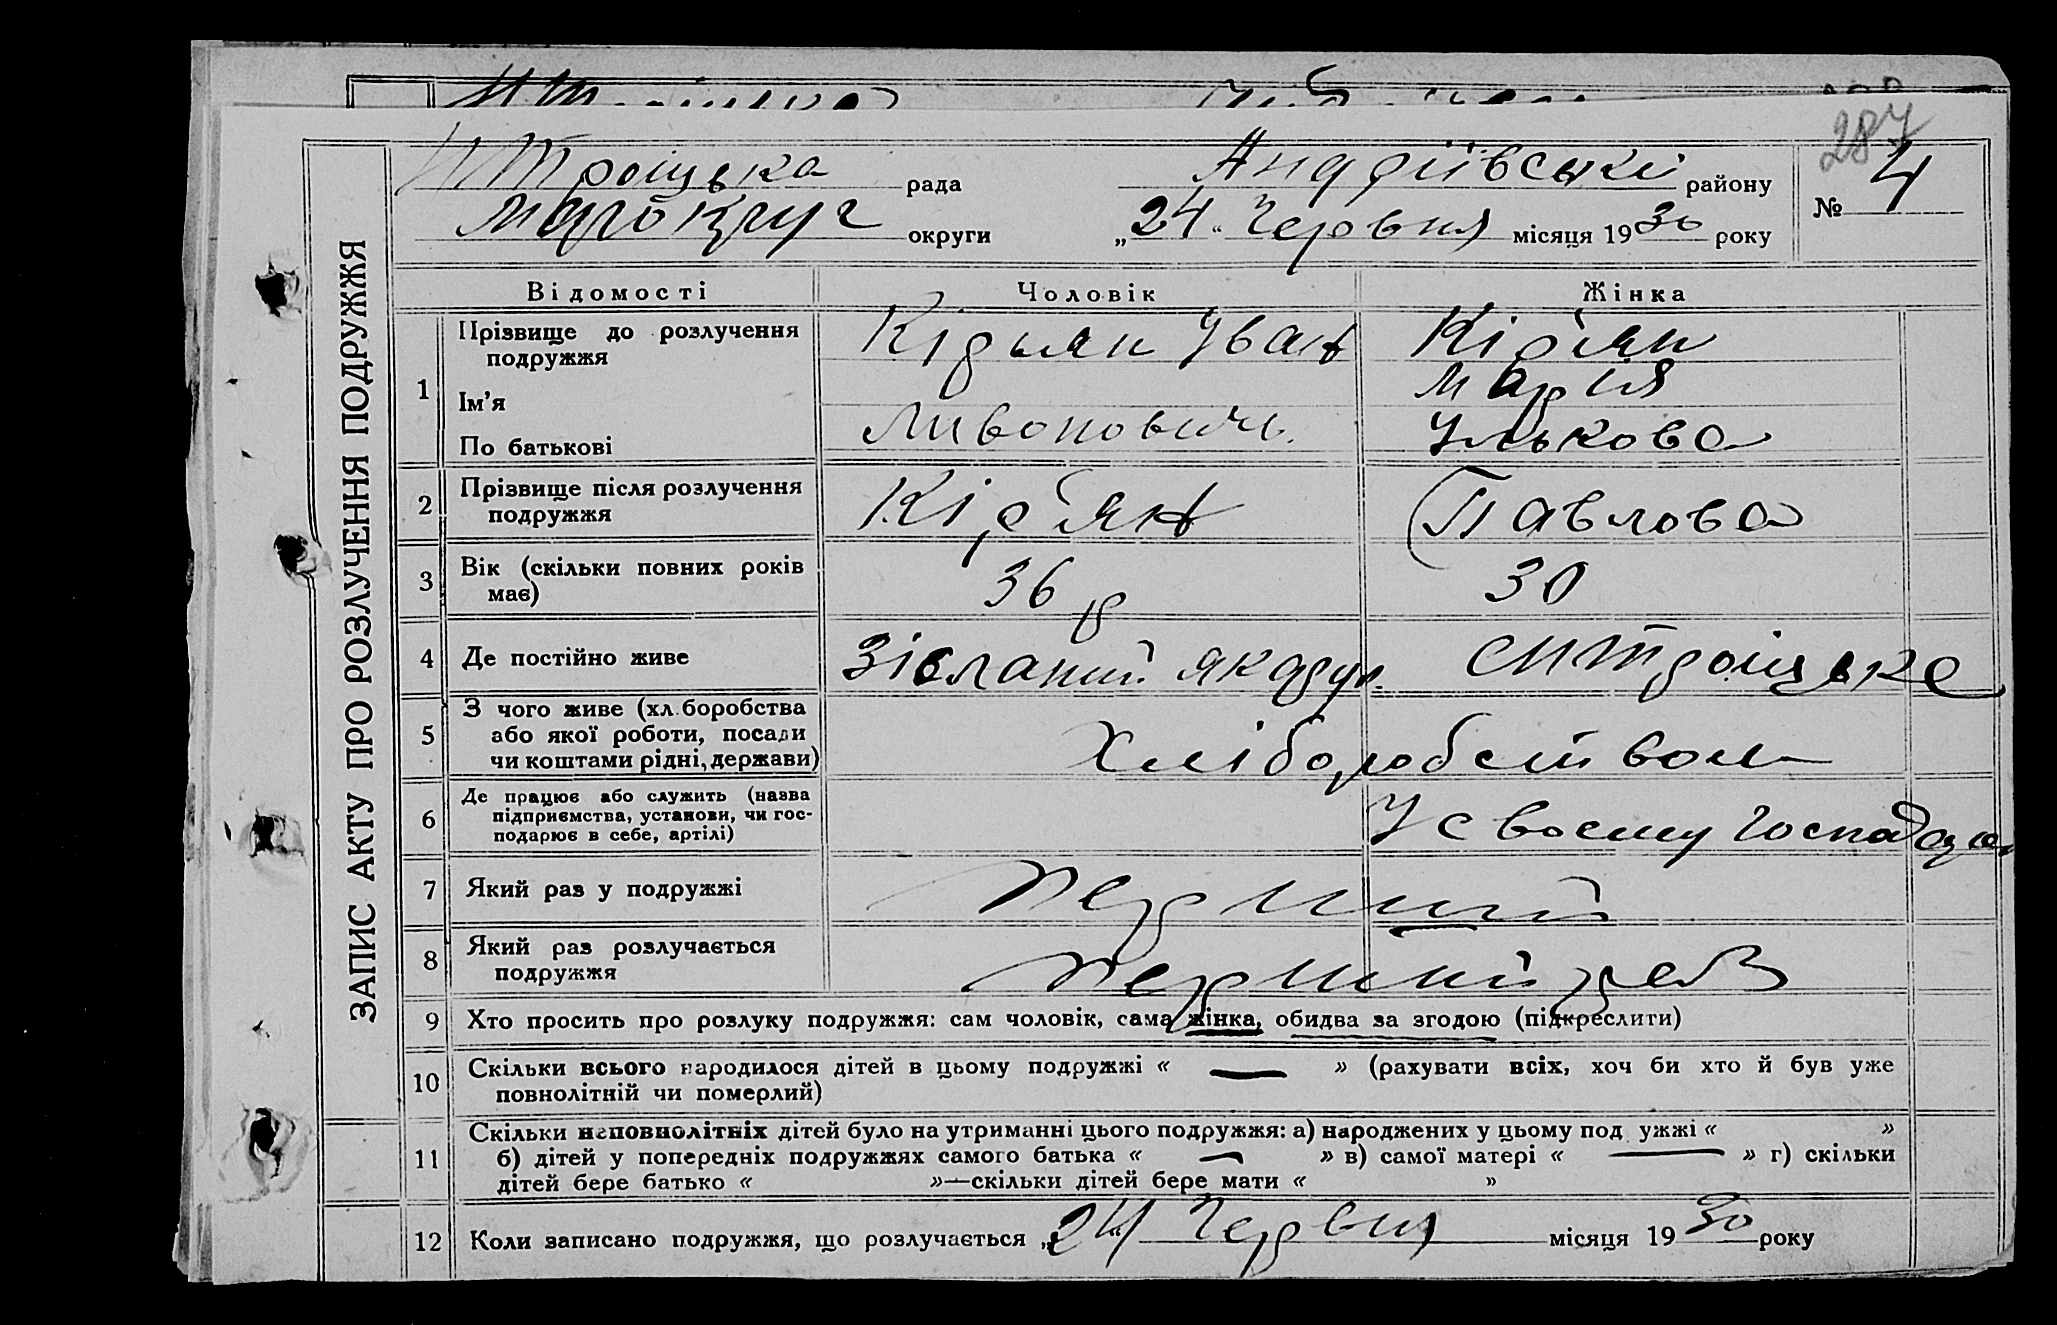 287
Н Троіцька рада Андріївські району № 4
округи „24“ Червня місяця 1930 року
ЗАПИС АКТУ ПРО РОЗЛУЧЕННЯ ПОДРУЖЖЯ
Відомості Чоловік Жінка
1 Прізвище до розлучення подружжя Кірьян Іван Кір'ян
Ім'я Марія
По батькові Ливонович Ількова
2 Прізвище після розлучення подружжя Кір'ян Павлова
3 Вік (скільки повних років має) 36 р 30
4 Де постійно живе Зісланий як СНТроіцьке
5 З чого живе (хліборобства або якої роботи, посади чи коштами рідні, держави) Хліборобством
6 Де працює або служить (назва підприємства, установи, чи господарює в себе, артілі) У своему
7 Який раз у подружжі Перший
8 Який раз розлучається подружжя Перший раз
9 Хто просить про розлуку подружжя: сам чоловік, сама жінка, обидва за згодою (підкреслити)
10 Скільки всього народилося дітей в цьому подружжі « — » (рахувати всіх, хоч би хто й був уже
повнолітній чи померлий)
11 Скільки неповнолітніх дітей було на утриманні цього подружжя: а) народжених у цьому подружжі « »
б) дітей у попередніх подружжях самого батька « — » в) самої матері « — » г) скільки
дітей бере батько « »—скільки дітей бере мати « »
12 Коли записано подружжя, що розлучається „24“ Червня місяця 1930 року